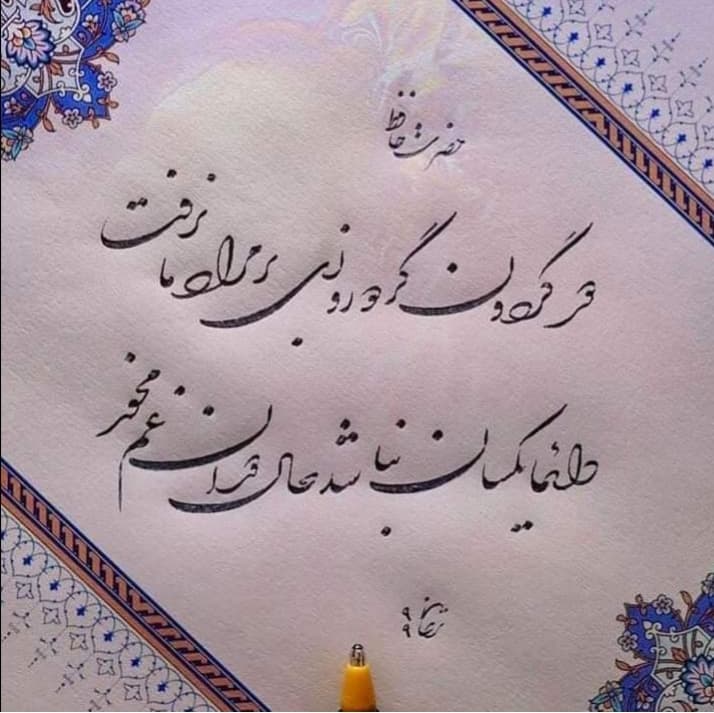 حضرت حافظ
دور گردون گر دو روزی بر مراد ما نرفت
دائما یکسان نباشد حال دوران غم مخور
۹۹